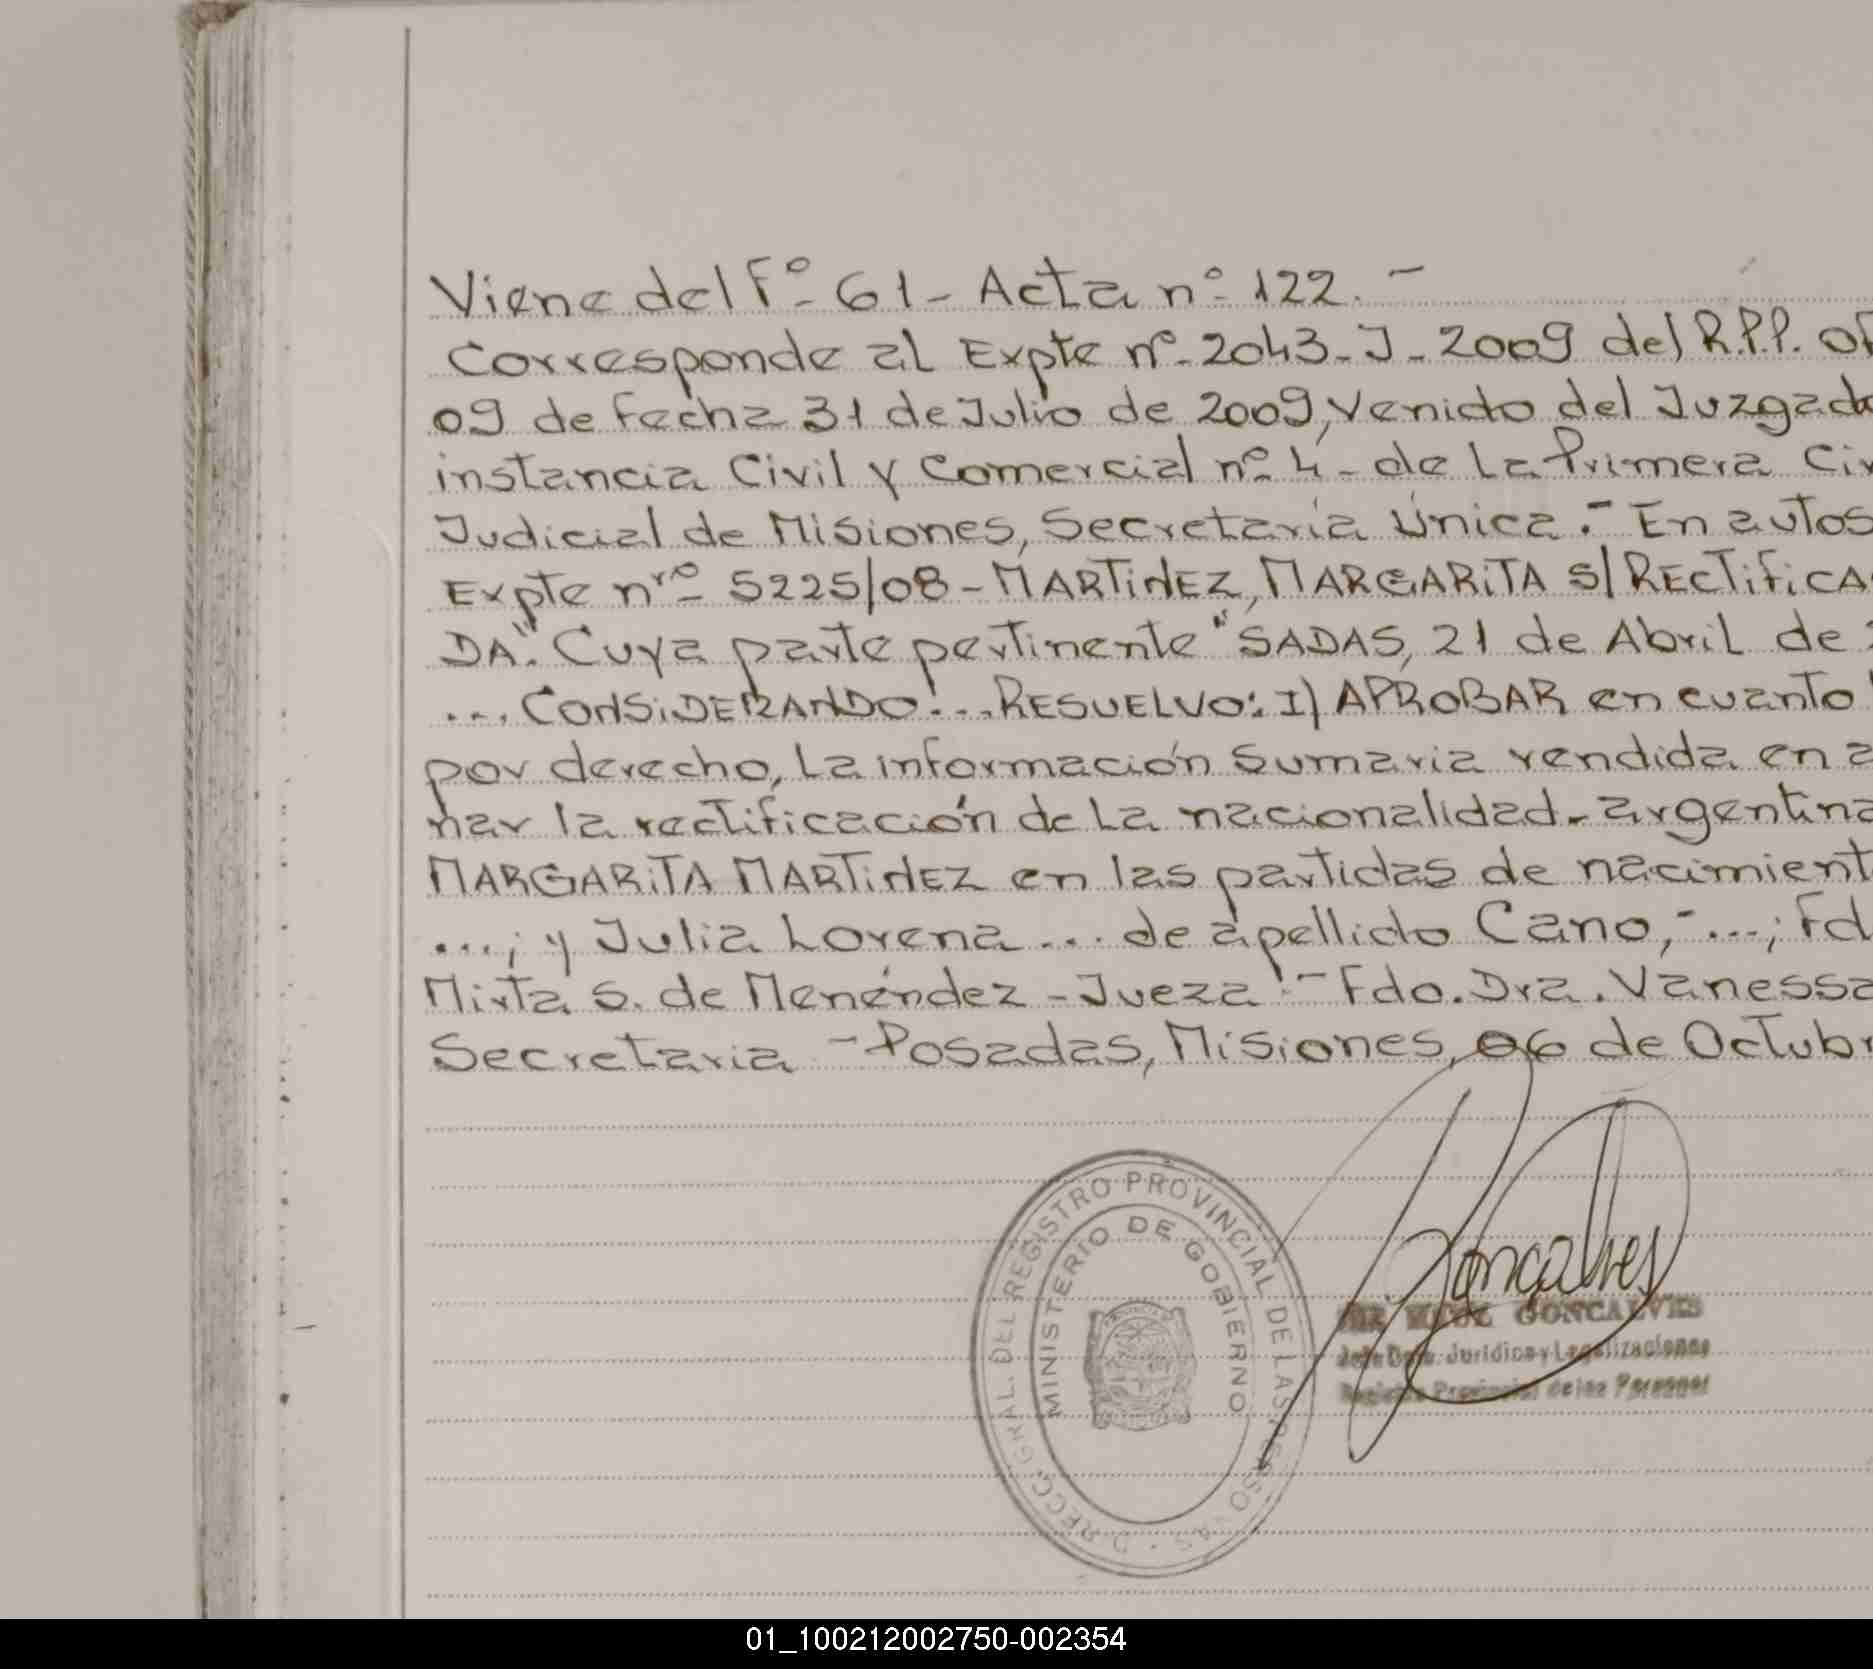 Viene del Fº- 61- Acta nº- 122. -
Corresponde al Expte nº- 2043- J - 2009 del R.P.P. OF
09 de Fecha 31 de Julio de 2009, Venido del Juzgado
instancia Civil y Comercial nº- 4- de La Primera Cir
Judicial de Misiones, Secretaría Única.- En autos
Expte nro- 5225/08 - MARTiNEZ, MARGARiTA S/ RECTiFiCA
DA". Cuya parte pertinente "SADAS, 21 de Abril de 2
... CONSiDERANDO:...RESUELVO: I) APROBAR en cuanto
por derecho, La información Sumaria rendida en a
nar la rectificación de La nacionalidad- argentina
MARGARiTA MARTiNEZ en las partidas de nacimient
...; y Julia Lorena ... de apellido Cano,-...; Fd
Mirta S. de Menéndez - Jueza".- Fdo. Dra. Vanessa
Secretaria - Posadas, Misiones, 06 de Octubr
DIRECC. GRAL. DEL REGISTRO PROVINCIAL DE LAS PERSONAS
MINISTERIO DE GOBIERNO
Goncalves
GONCALVES
Jefe Dpto. Jurídico y Legalizaciones
Registro Provincial de las Personas
01_100212002750-002354